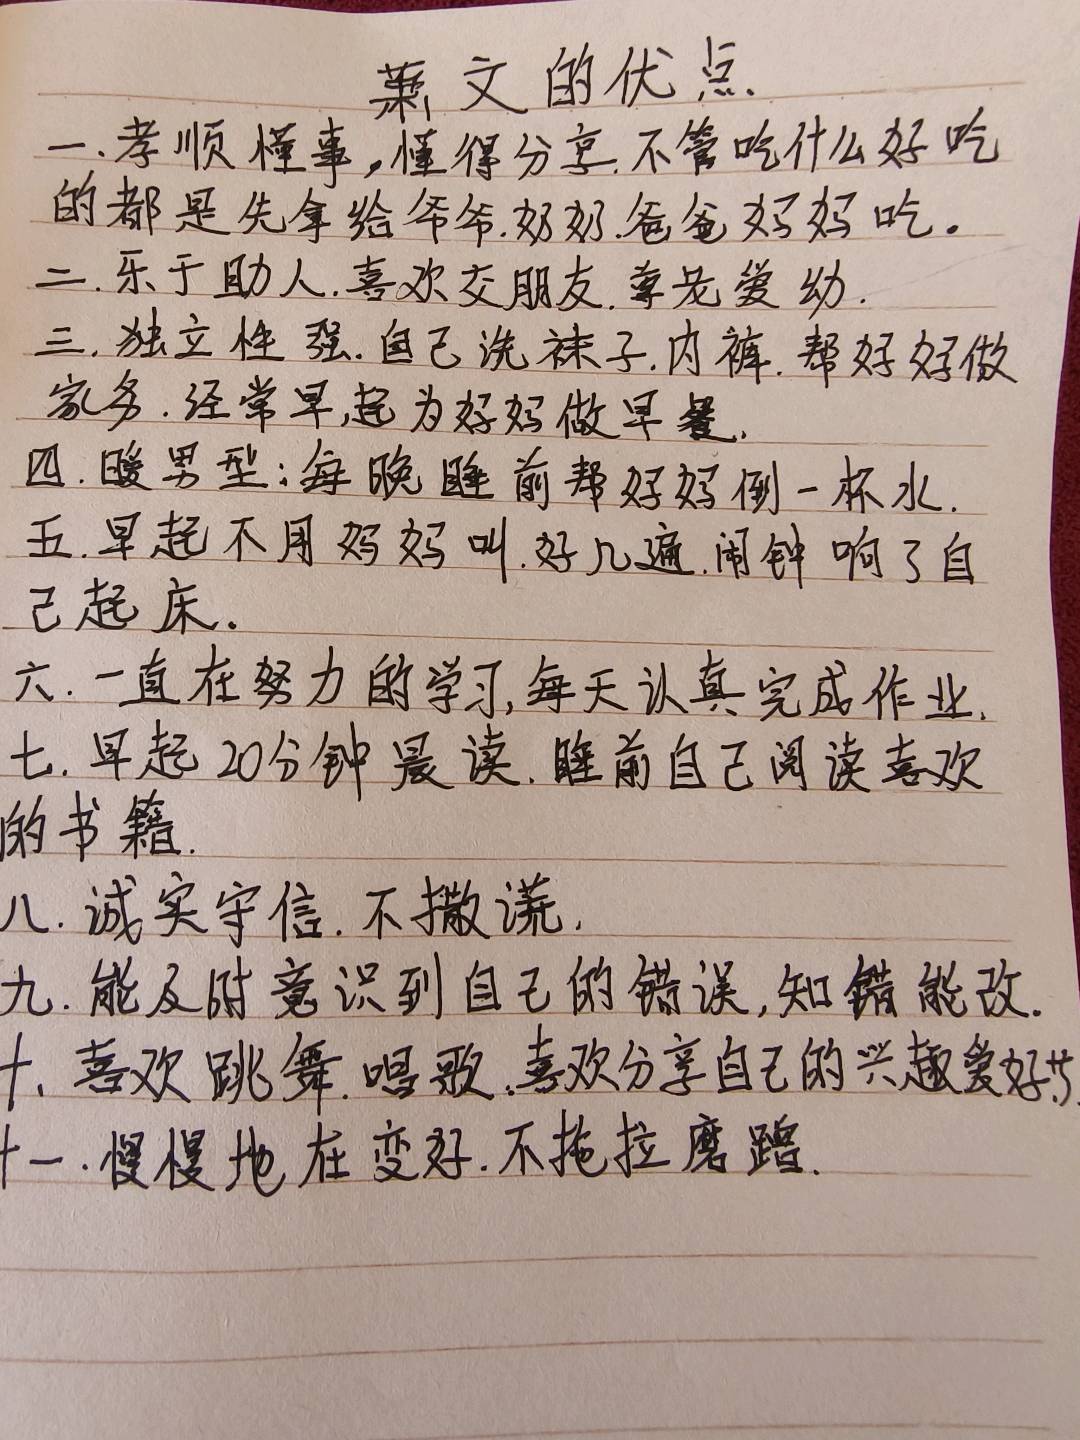 萧文的优点.
一.孝顺懂事,懂得分享.不管吃什么好吃
的都是先拿给爷爷.奶奶.爸爸妈妈吃.
二.乐于助人.喜欢交朋友.尊老爱幼.
三.独立性强.自己洗袜子.内裤.帮好好做
家务.经常早起为好妈做早餐.
四.暖男型:每晚睡前帮好妈倒一杯水.
五.早起不用妈妈叫.好几遍.闹钟响了自
己起床.
六.一直在努力的学习,每天认真完成作业.
七.早起20分钟晨读.睡前自己阅读喜欢
的书籍.
八.诚实守信.不撒谎.
九.能及时意识到自己的错误,知错能改.
十.喜欢跳舞.唱歌.喜欢分享自己的兴趣爱好
十一.慢慢地在变好.不拖拉磨蹭.